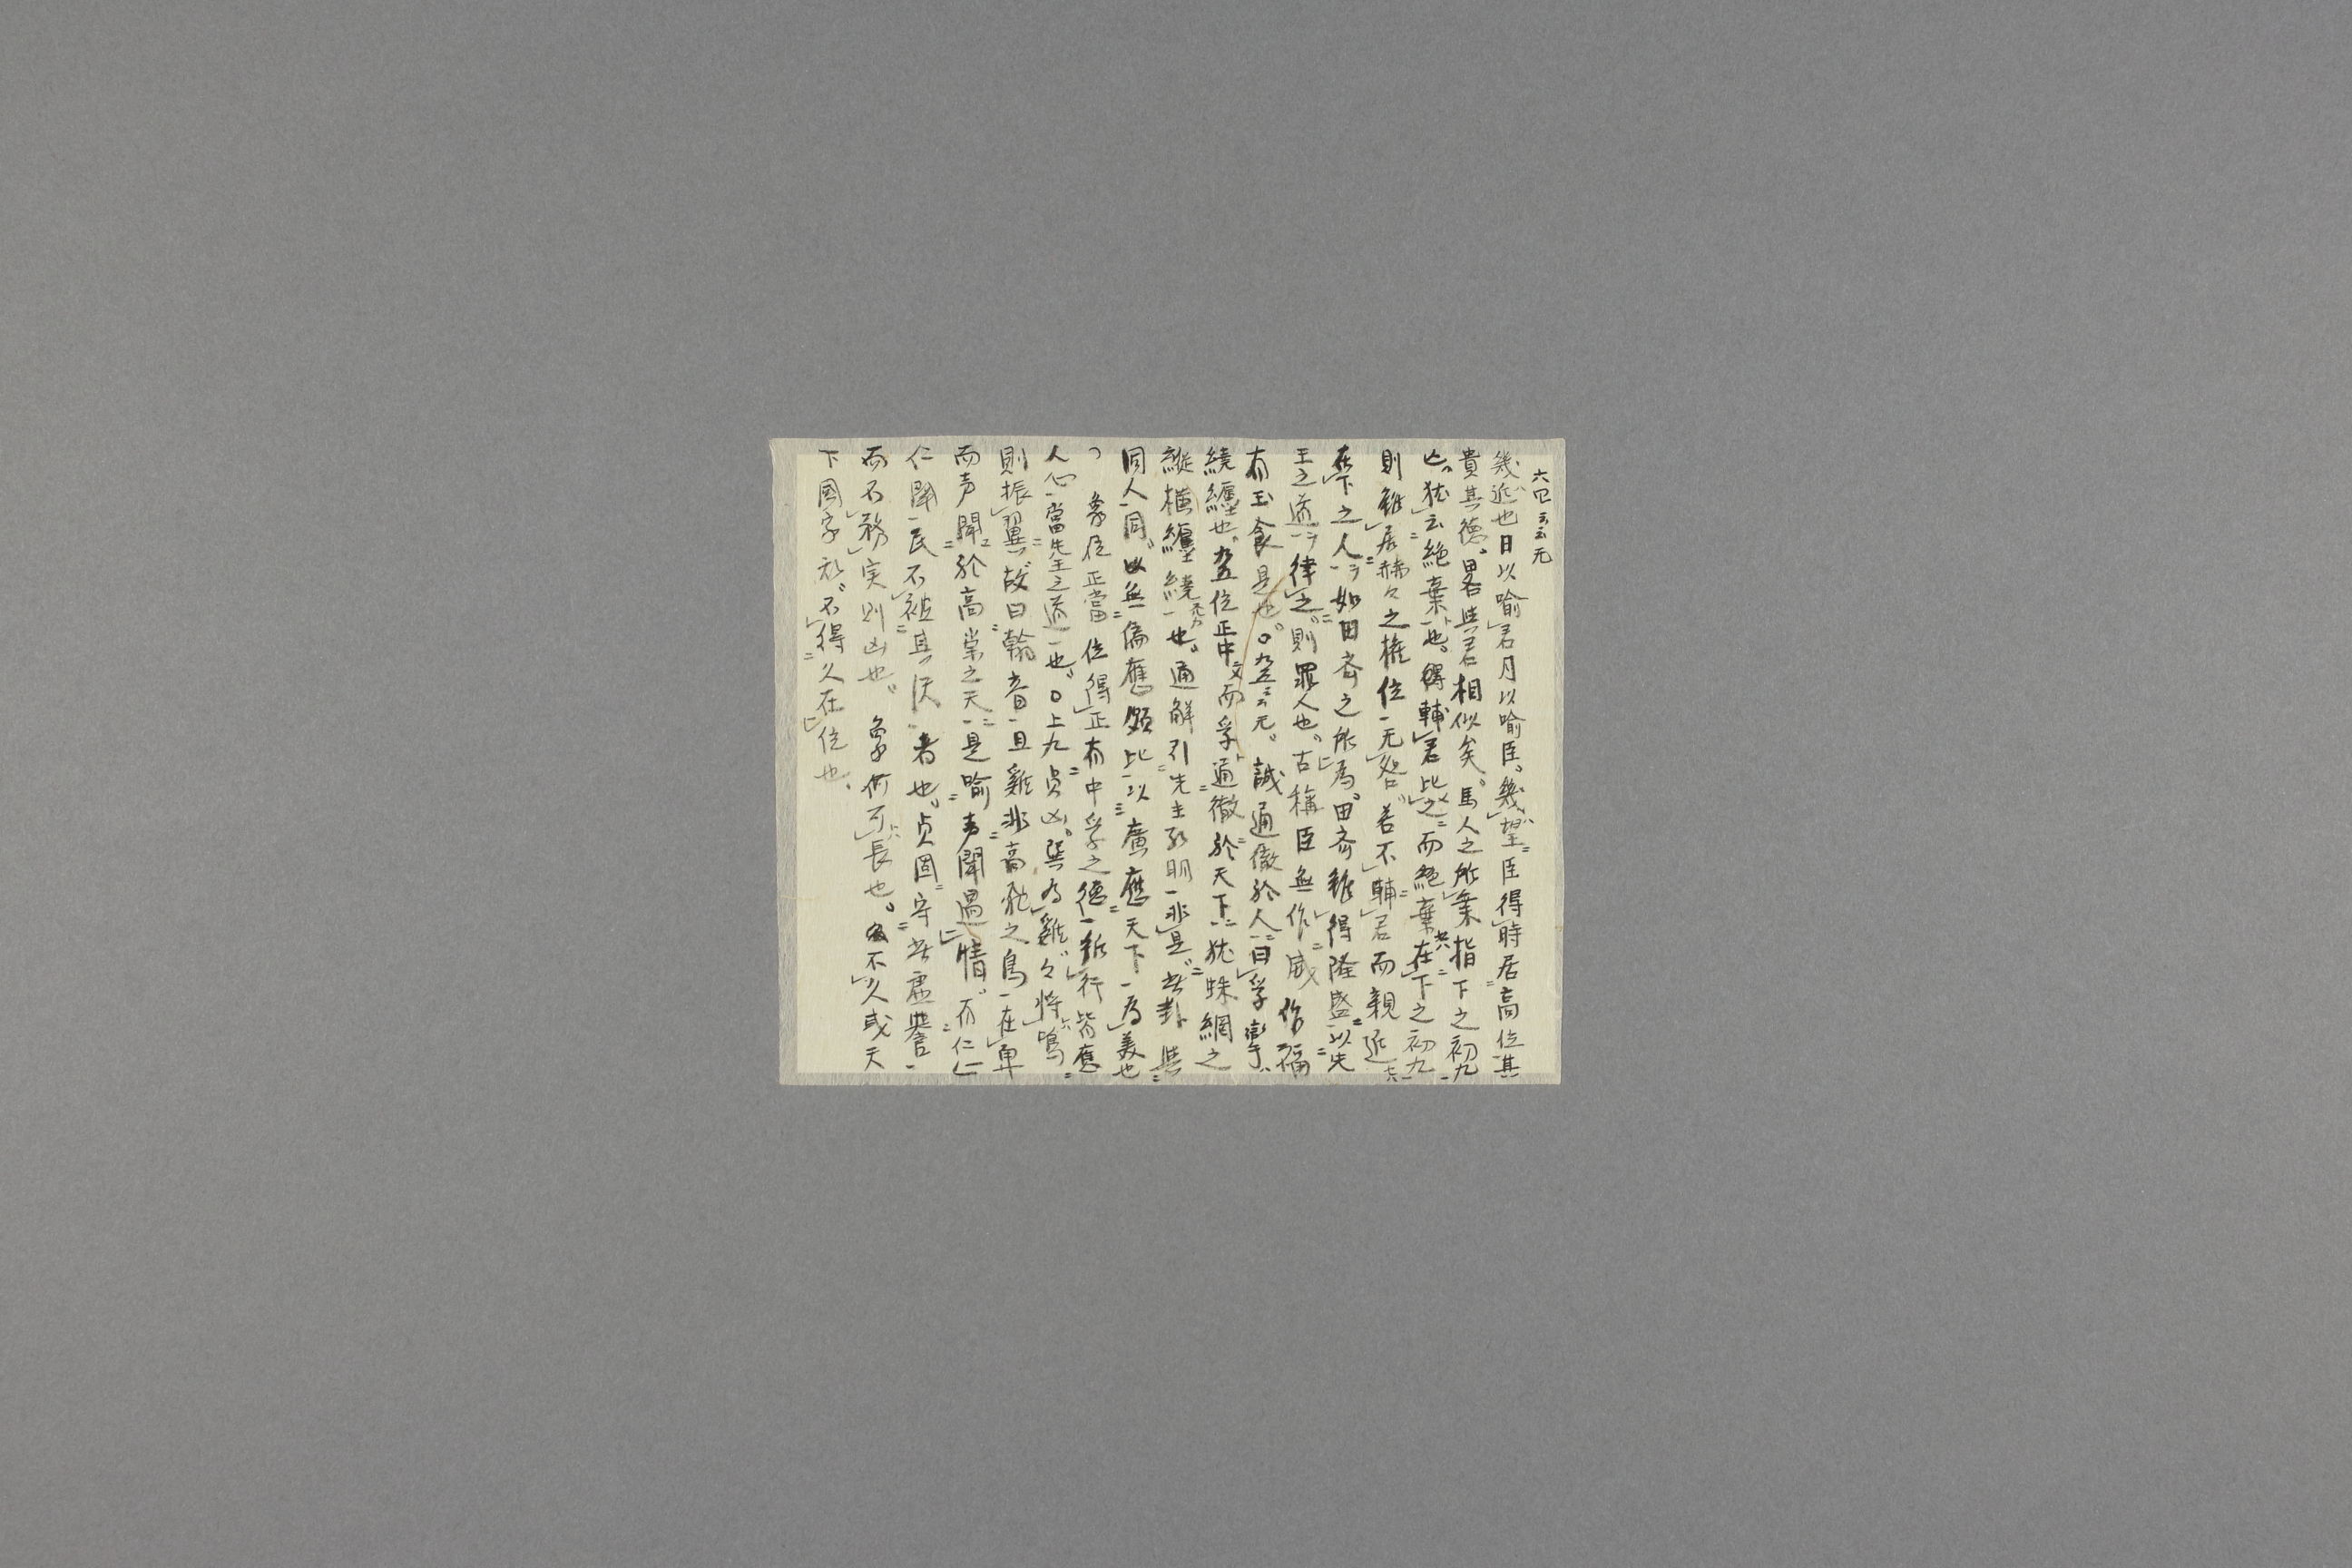 六四云云无
幾近也日以喻君月以喻臣。幾望臣得時居高位其
貴其德。畧與君相似矣。馬人之所乗指下之初九
亡。猶云絶棄也。得輔君比之而絶棄在下之初九
則雖居赫々之權位无咎。若不輔君而親近
在下之人如田斉之所為。田斉雖得隆盛以先
王之道律之。則罪人也。古稱臣無作威作福
有玉食是也。〇九五云云无。誠通徹於人曰孚攣
繞纏也。九五位正中而孚通徹於天下猶蛛網之
縱横纏繞也。通解引先主孔明非是。此卦與
同人同。以無偏應頗比以廣應天下為美也
象位正當位得正有中孚之德雖行皆應
人心當先王之道也。〇上九貞凶。巽為雞。々将鳴
則振翼故曰翰音且雞非高飛之鳥在卑
而声聞於高棠之天是喻声聞過情。有仁
仁聞民不被其沢者也。貞固守此虚譽
而不務実則凶也。象何可長也。不久或天
下國家。不得久在位也。